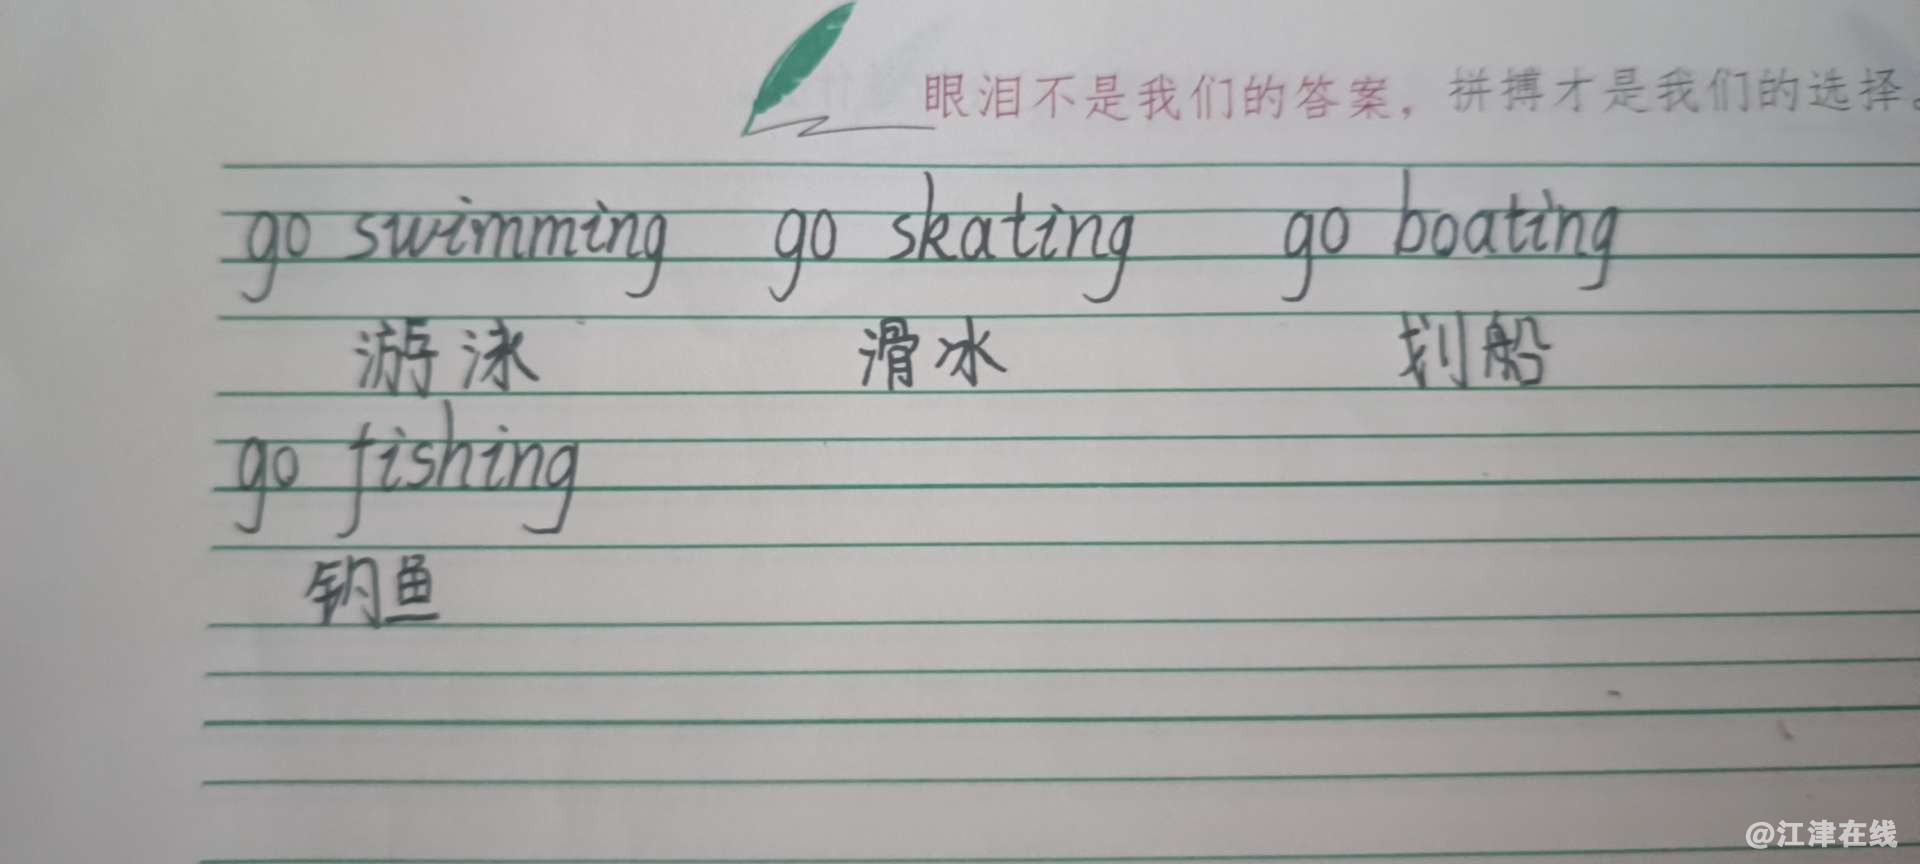 眼泪不是我们的答案，拼搏才是我们的选择。
go swimming go skating go boating
游泳 滑冰 划船
go fishing
钓鱼
@江津在线